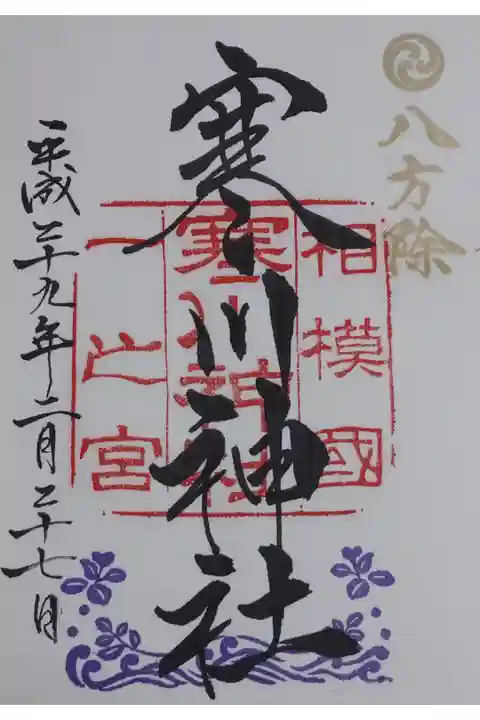 八方除
寒川神社
相模國
寒川神社
一之宮
平成二十九年二月二十七日